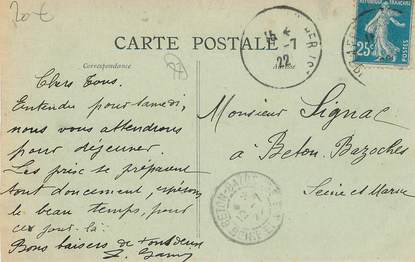 20€
CARTE POSTALE
Correspondance
RÉPUBLIQUE FRANÇAISE
25c
POSTES
15
-7
22
Chers Tous.
Entendu pour samedi,
nous vous attendrons
pour déjeuner.
Les prix se préparent
tout doucement, espérons
le beau temps, pour
ces jours là.
Bons baisers de tous deux
Monsieur Signac
à Beton. Bazoches
Seine et Marne
BETON-BAZOCHES
SEINE ET M